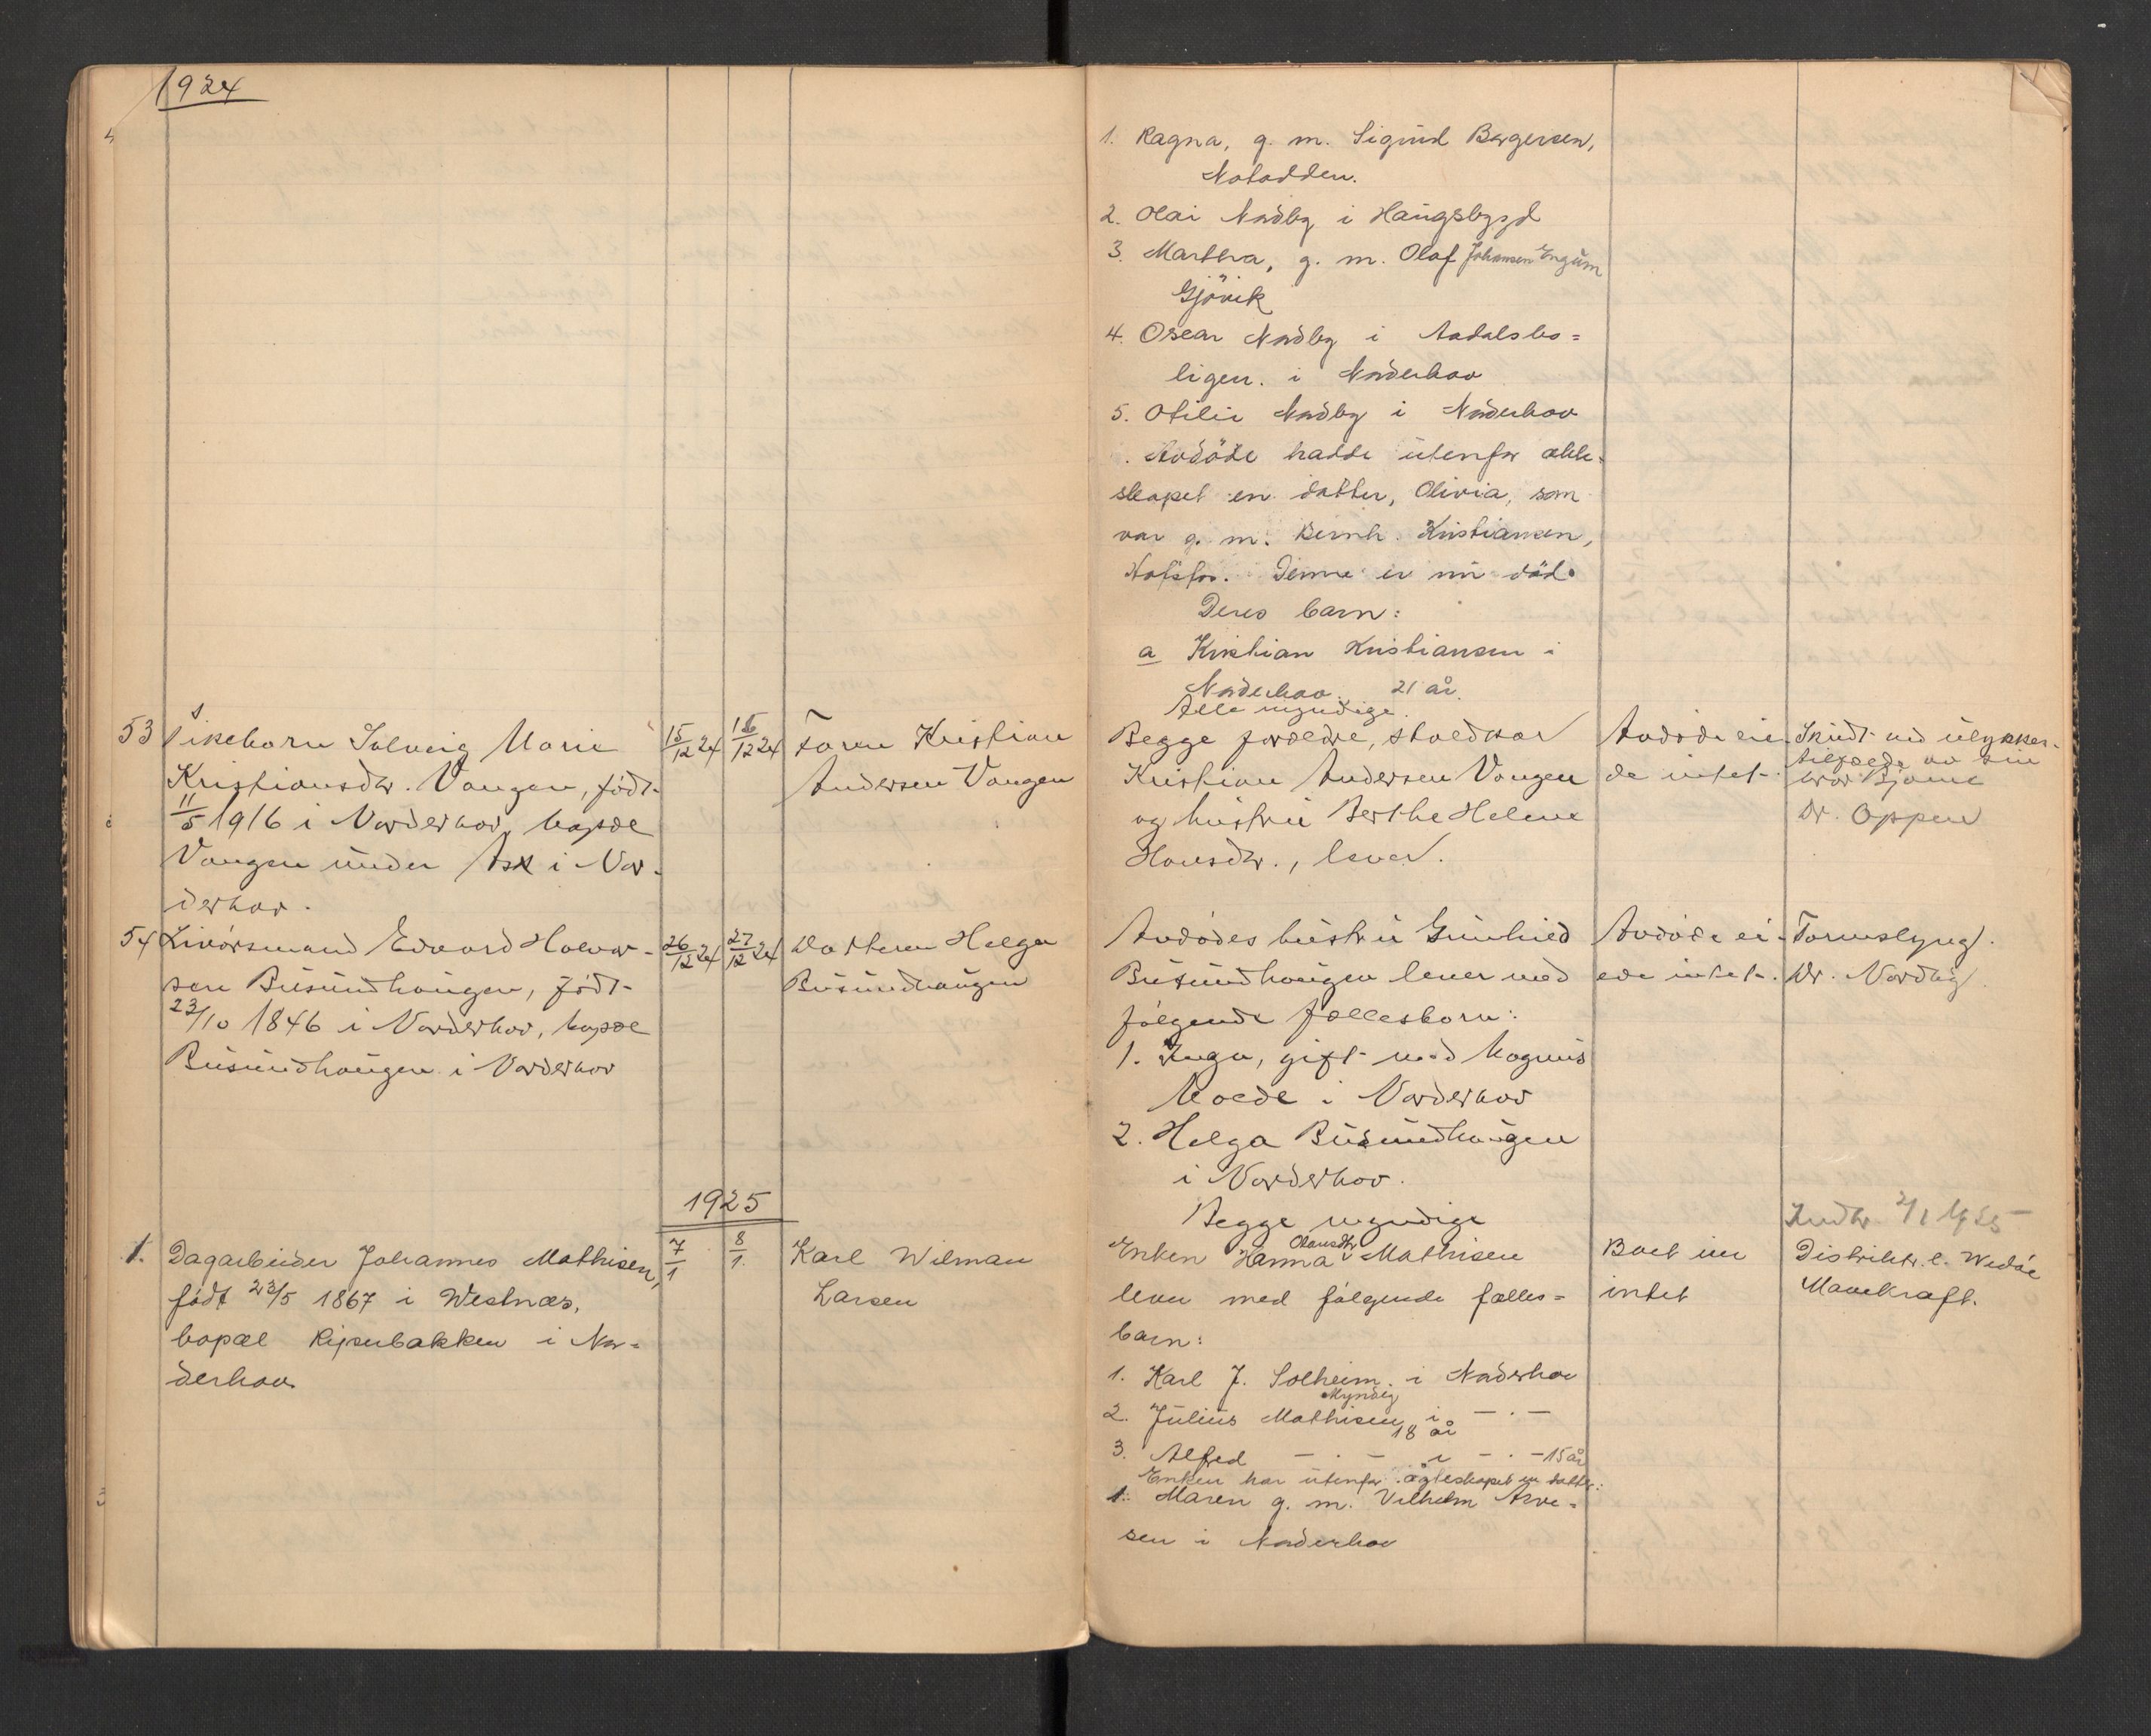 1924
1. Ragna, g. m. Sigurd Bergersen,
Notodden.
2. Olai Nordby i Haugsbygd
3. Martha, g. m. Olaf Johansen Engum
Gjövik
4. Oscar Nordby i Aadalsbo=
ligen. i Norderhov
5. Otilie Nordby i Norderhov
Avdöde hadde utenfor ekte-
skapet en datter, Olivia, som
var g. m. Bernh. Kristiansen,
Hofsfos. Denne er nu död.
Deres barn:
a Kristian Kristiansen i
Norderhov. 21 år.
Alle myndige.
53 Pikebarn Solveig Marie
Kristiansdtr. Vangen, født
11/5 1916 i Norderhov, bopæl
Vangen under Ask i Nor-
derhov.
15/12 24
16/12 24
Faren Kristian
Andersen Vangen
Begge forældre,
Kristian Andersen Vangen
og hustru Berthe Helene
Hansdtr., lever.
Avdøde eie-
de intet.
Skudt ved ulykkes-
tilfælde av sin
bror Bjarne
Dr. Oppen
54 Livørsmand Edvard Halvor-
sen Busundhaugen, født
23/10 1846 i Norderhov, bopæl
Busundhaugen i Norderhov
26/12 24
27/12 24
Datteren Helga
Busundhaugen
Avdødes hustru Gunhild
Busundhaugen lever med
følgende fællesbarn:
1. Inga, gift med Magnus
Moede i Norderhov
2. Helga Busundhaugen
i Norderhov.
Begge myndige
Avdøde ei-
ede intet.
Tarmslyng.
Dr. Nordby.
1925
Indb. 2/1 1925
1. Dagarbeider Johannes Mathisen,
født 23/5 1867 i Westnæs,
bopæl Ripserbakken i Nor=
derhov
7/1
8/1.
Karl Wilman
Larsen
Enken Hanna Olausdtr Mathisen
lever med følgende fælles=
barn:
1. Karl J. Solheim i Norderhov
Myndig
2. Julius Mathisen i — . —
18 år
3. Alfred — . — i — . — 15 år
Enken har utenfor ægteskapet en datter:
1. Maren g. m. Vilhelm Arne=
sen i Norderhov
Boet eier
intet
Distriktsl. Wedøe
Mavekraft.